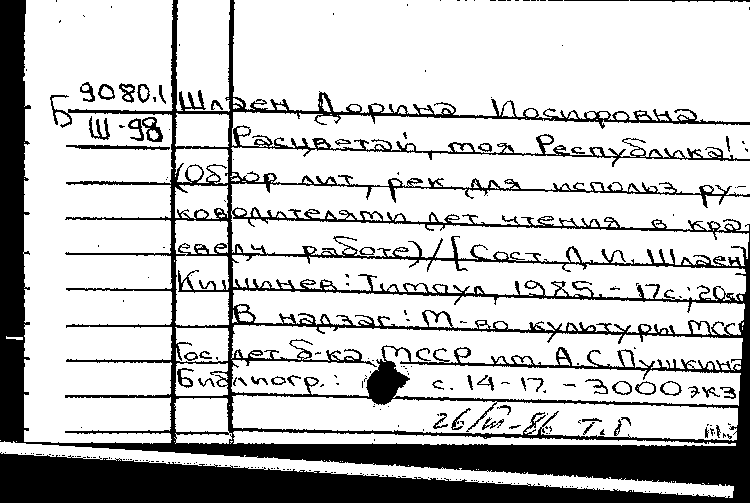 Б 9080.1
Ш-98
Шлаен, Дорина Иосифовна.
Расцветай, моя Республика!:
(Обзор лит, рек для использ ру-
ководителями дет. чтения в кра-
еведч. работе)/[Сост. Д. И. Шлаен]
Кишинев: Тимпул, 1985.- 17с.; 20см
В надзаг.: М-во культуры МССР
Гос. дет. б-ка МССР им. А.С.Пушкина
Библиогр.: с. 14-17. - 3000экз
26/III-86 Т.Г